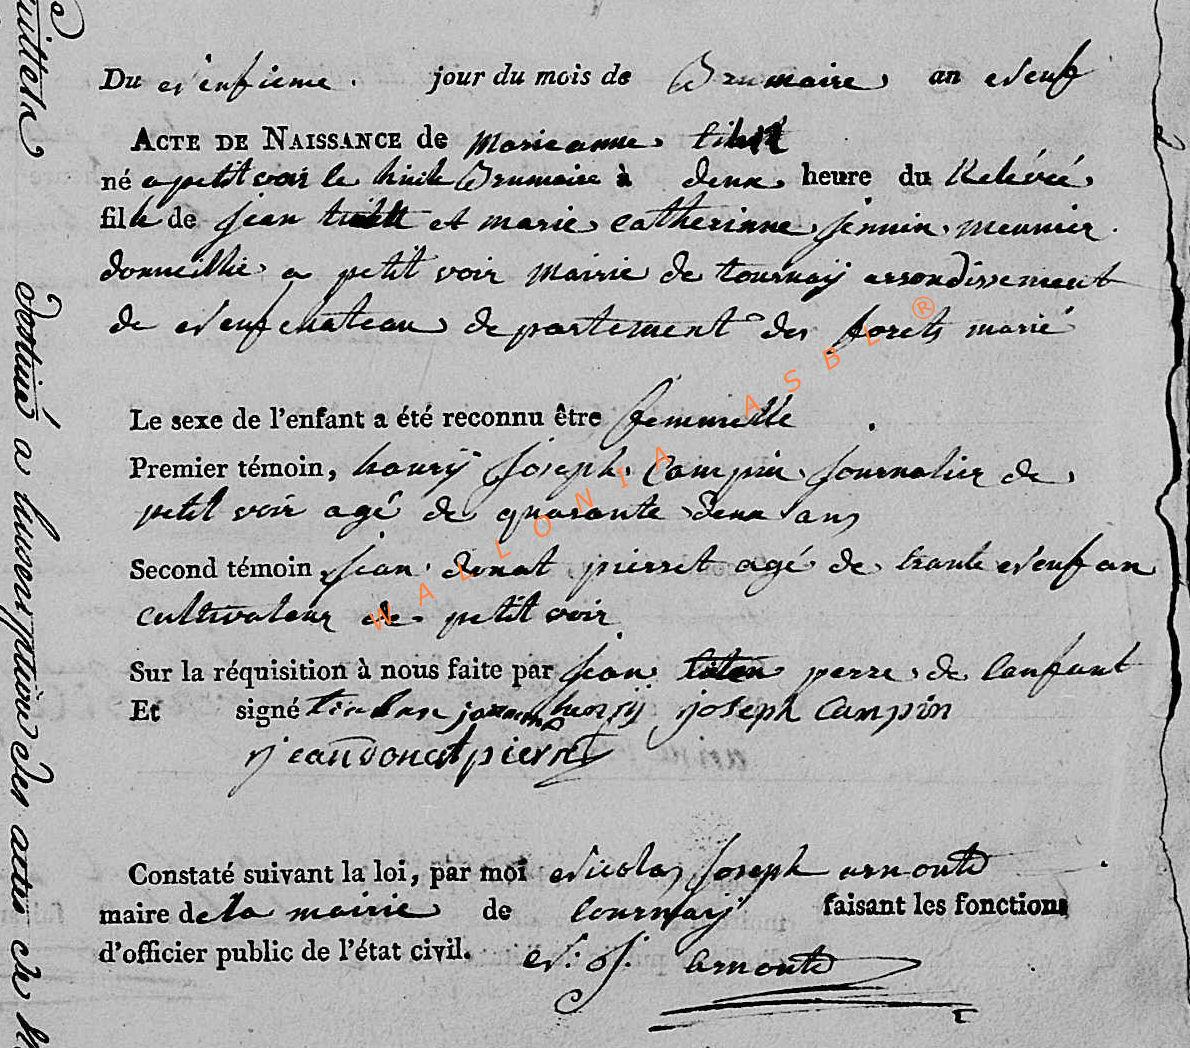 Du neufieme jour du mois de Brumaire an neuf
ACTE DE NAISSANCE de marieanne
né a petit voir le huite Brumaire à deux heure du Relévée
fille de jean et marie catherinne jennin meunier
domeillié a petit voir mairie de tournay arrondissement
de neufchateau departement des forets marié
Le sexe de l'enfant a été reconnu être femmelle
Premier témoin, henry joseph Campin journalier de
petit voir agé de quarante deux ans
Second témoin jean donat pierret agé de trante neuf an
cultivateur de petit voir
Sur la réquisition à nous faite par jean perre de lanfant
Et signé henry joseph Campin
jean donat pierret
Constaté suivant la loi, par moi Nicolas Joseph arnould
maire de la mairie de tournay faisant les fonctions
d'officier public de l'état civil. N: J. arnould
destiné a l'inscription des actes de
WALLONIA ASBL ®